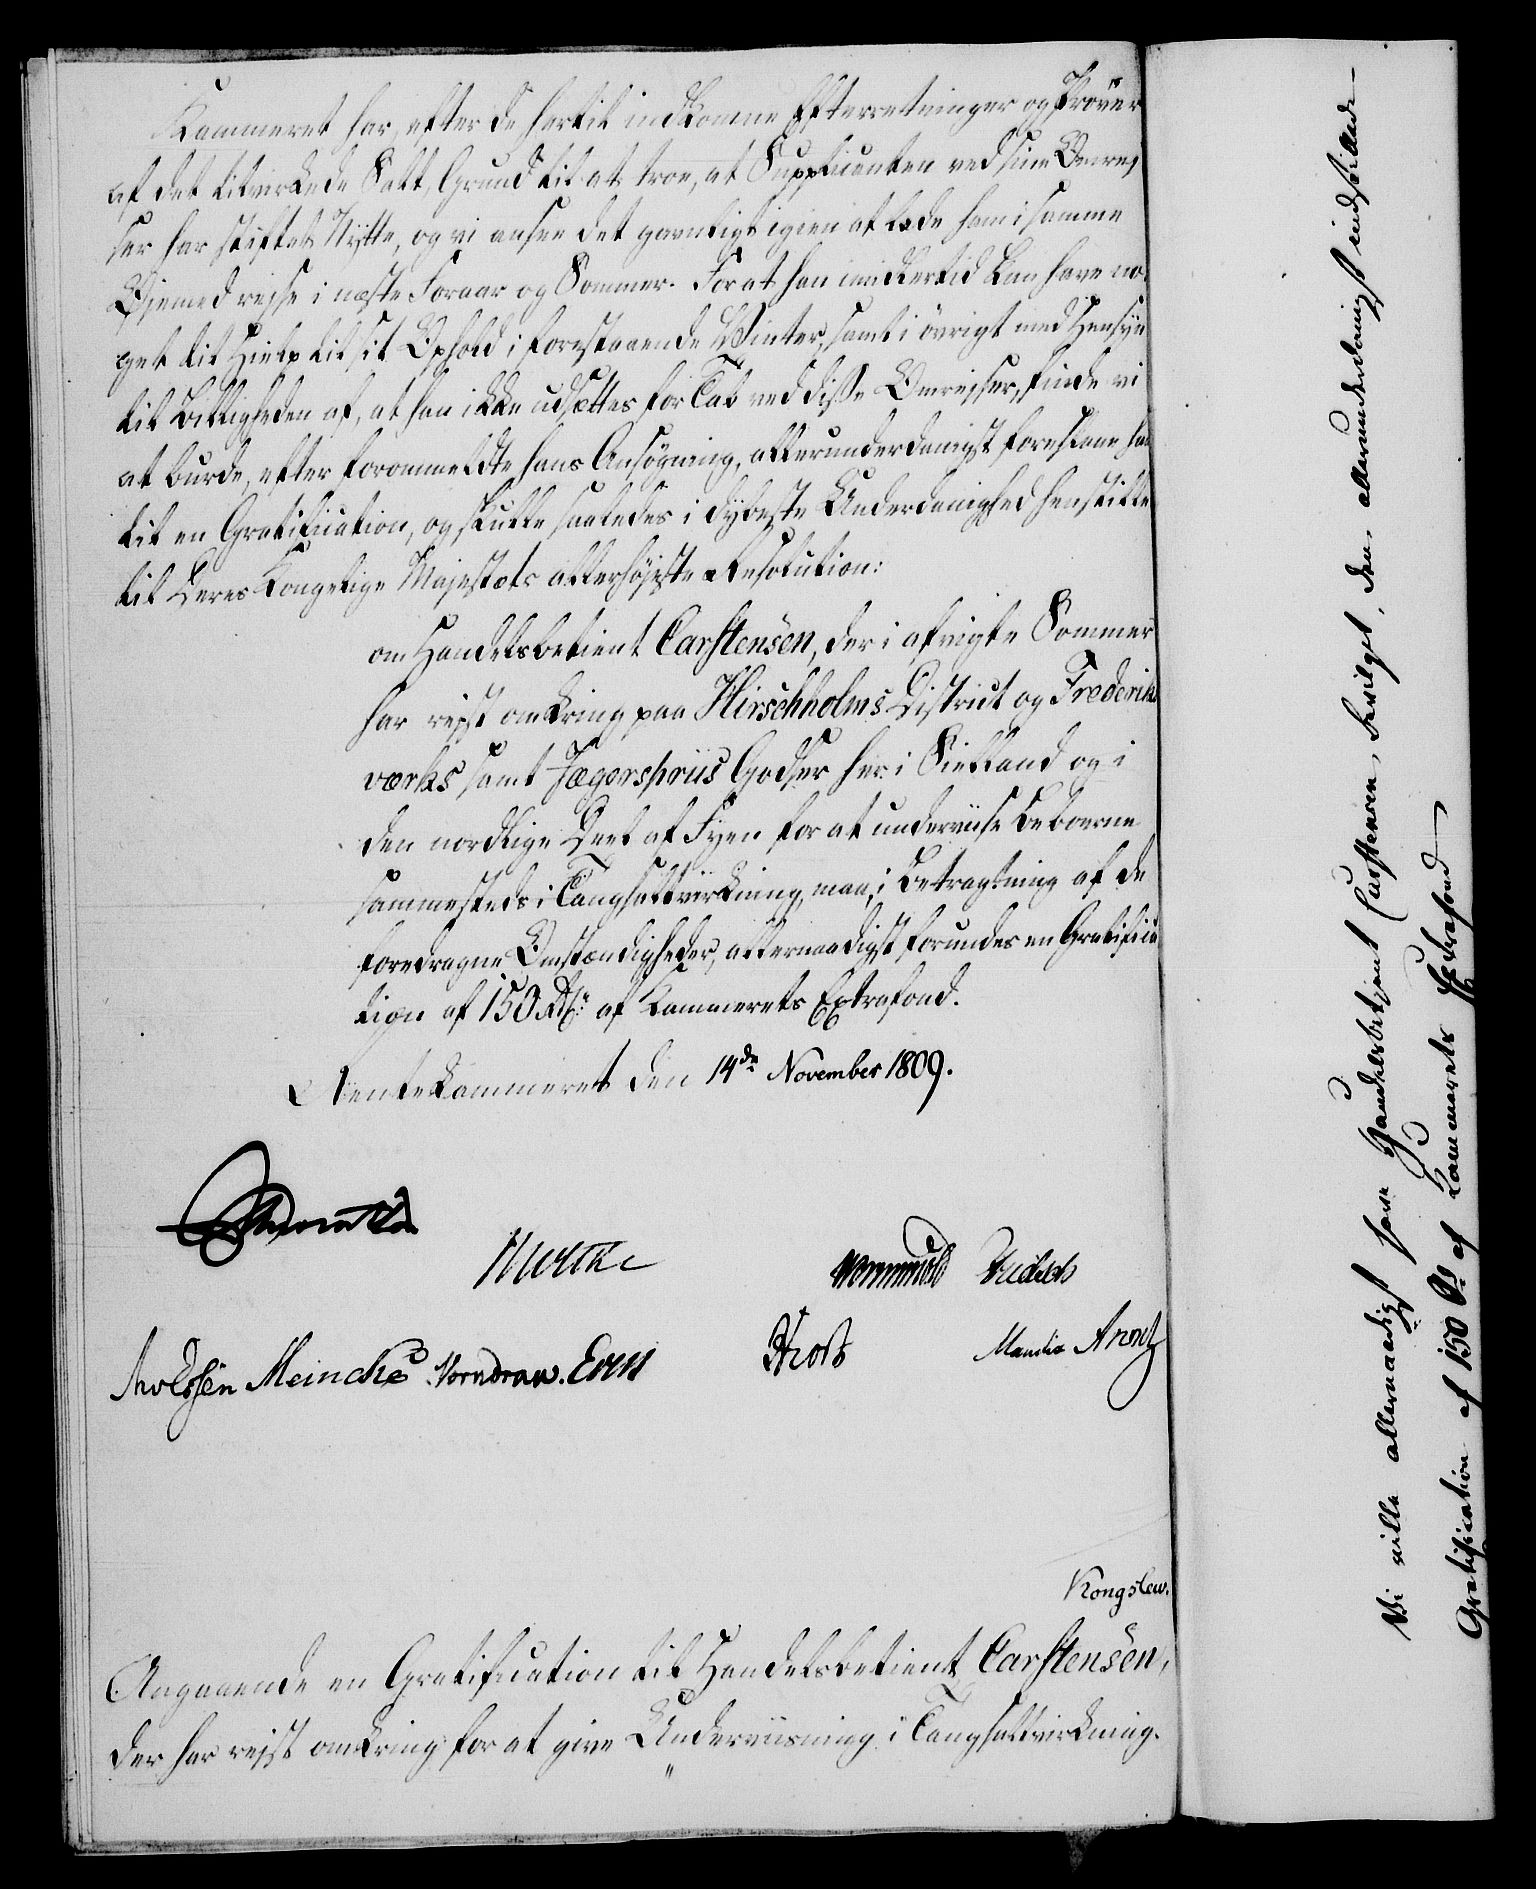 Kammeret har, efter de hertil indkomne Efterretninger og Prøver
af det tilvirkede Salt, Grund til at troe, at Supplicanten ved sine Omrej
ser har stiftet Nytte, og vi ansee det gavnligt igien at lade ham i samme
Øjemed rejse i næste Foraar og Sommer. For at han imidlertid kan have no
get til Hielp til sit Ophold i forestaaende Winter, samt i övrigt med Hensyn
til Billigheden af, at han ikke udsættes for Tab ved disse Omrejser, finde vi
at burde, efter foranmeldte hans Ansøgning, allerunderdanigst foreslaae ham
til en Gratification, og skulle saaledes i dybeste Underdanighed henstille
til Deres Kongelige Majestæts allerhöjeste Resolution:
om Handelsbetient Carstensen, der i afvigte Sommer
har rejst omkring paa Hirschholms District og Frederiks
værks samt Jægersprüs Godser her i Sielland og i
den nordlige Deel af Fyen for at underviise Beboerne
sammesteds i Tangsaltvirkning, maa, i Betragtning af de
foredragne Omstændigheder, allernaadigst forundes en Gratifica
tion af 150 Rd. af Kammerets Extrafond.
Rentekammeret den 14de November 1809.
Wormskiold
Knoblauch
Meincke Vorndran. Evers
Monrath Arontz
Kongslew.
Angaaende en Gratification til Handelsbetient Carstensen,
der har rejst omkring for at give Underviisning i Tangsaltvirkning.
Vi ville allernaadigst have Handelsbetjent Carstensen bevilget, den allerunderdanigst indstillede
Gratification af 150 Rd af Kammerets Extrafond